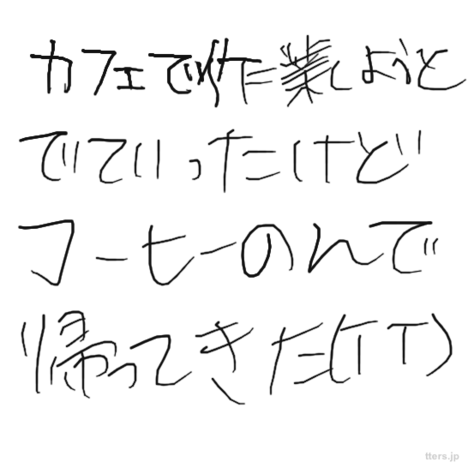 カフェで作業しようと
でていったけど
コーヒーのんで
帰ってきた(TT)
tters.jp